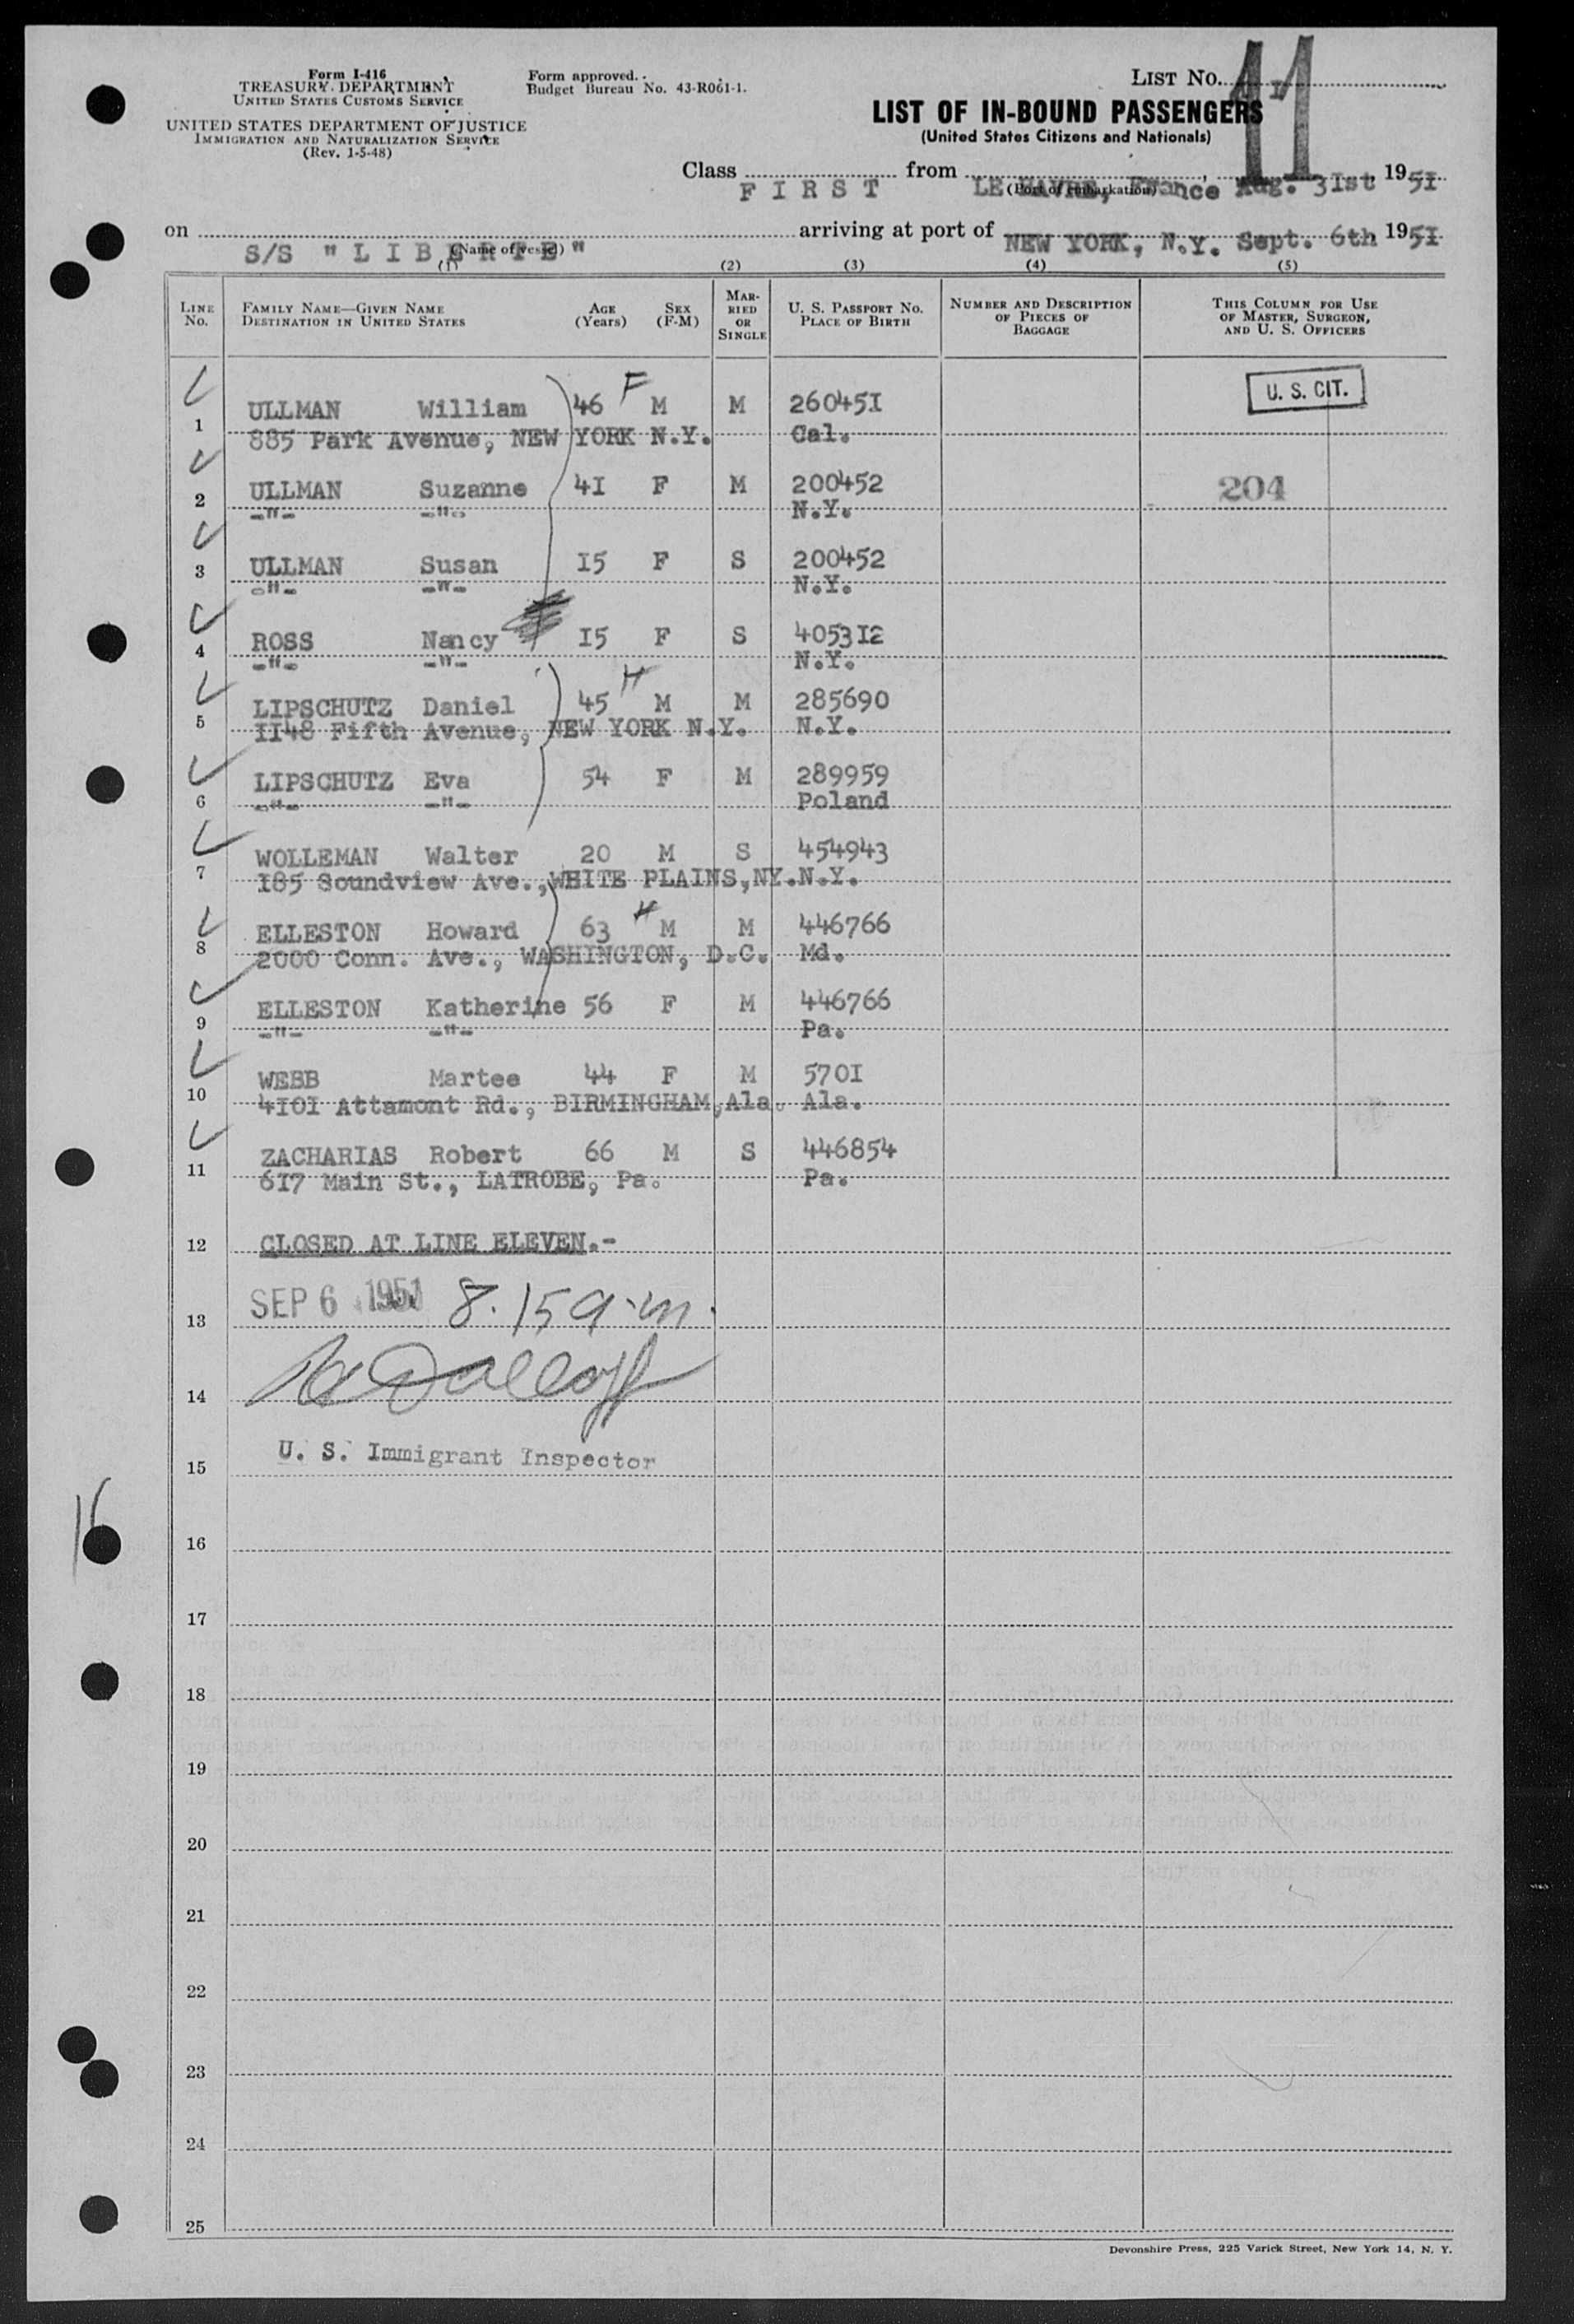 Form I-416
TREASURY DEPARTMENT
UNITED STATES CUSTOMS SERVICE
UNITED STATES DEPARTMENT OF JUSTICE
IMMIGRATION AND NATURALIZATION SERVICE
(Rev. 1-5-48)
Form approved.
Budget Bureau No. 43-R061-1.
LIST No. 11
LIST OF IN-BOUND PASSENGERS
(United States Citizens and Nationals)
Class FIRST from LE HAVRE, France Aug. 31st, 1951
(Port of embarkation)
on S/S "LIBERTE" arriving at port of NEW YORK, N.Y. Sept. 6th 1951
(Name of vessel)
(1) (2) (3) (4) (5)
LINE No. FAMILY NAME—GIVEN NAME DESTINATION IN UNITED STATES AGE (Years) SEX (F-M) MARRIED OR SINGLE U. S. PASSPORT No. PLACE OF BIRTH NUMBER AND DESCRIPTION OF PIECES OF BAGGAGE THIS COLUMN FOR USE OF MASTER, SURGEON, AND U. S. OFFICERS
1 ULLMAN William 46 F M M 260451 U. S. CIT.
885 Park Avenue, NEW YORK N.Y. Cal.
2 ULLMAN Suzanne 41 F M 200452 204
-"- -"- N.Y.
3 ULLMAN Susan 15 F S 200452
-"- -"- N.Y.
4 ROSS Nancy 15 F S 405312
-"- -"- N.Y.
5 LIPSCHUTZ Daniel 45 H M M 285690
1148 Fifth Avenue, NEW YORK N.Y. N.Y.
6 LIPSCHUTZ Eva 54 F M 289959
-"- -"- Poland
7 WOLLEMAN Walter 20 M S 454943
185 Soundview Ave., WHITE PLAINS,NY. N.Y.
8 ELLESTON Howard 63 H M M 446766
2000 Conn. Ave., WASHINGTON, D.C. Md.
9 ELLESTON Katherine 56 F M 446766
-"- -"- Pa.
10 WEBB Martee 44 F M 5701
4101 Attamont Rd., BIRMINGHAM,Ala. Ala.
11 ZACHARIAS Robert 66 M S 446854
617 Main St., LATROBE, Pa. Pa.
12 CLOSED AT LINE ELEVEN.-
13 SEP 6 1951 8.15 a.m.
14
15 U. S. Immigrant Inspector
16
16
17
18
19
20
21
22
23
24
25
Devonshire Press, 225 Varick Street, New York 14, N. Y.